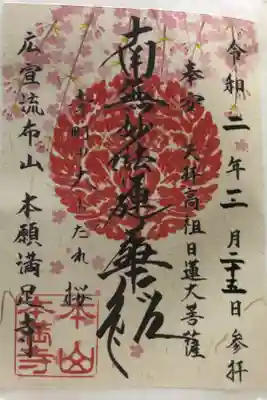 令和二年三月二十五日参拝
奉安 大拝高祖日蓮大菩薩
南無妙法蓮華経
寺町のしだれ桜
広宣流布山 本願満足寺
本山
本満寺